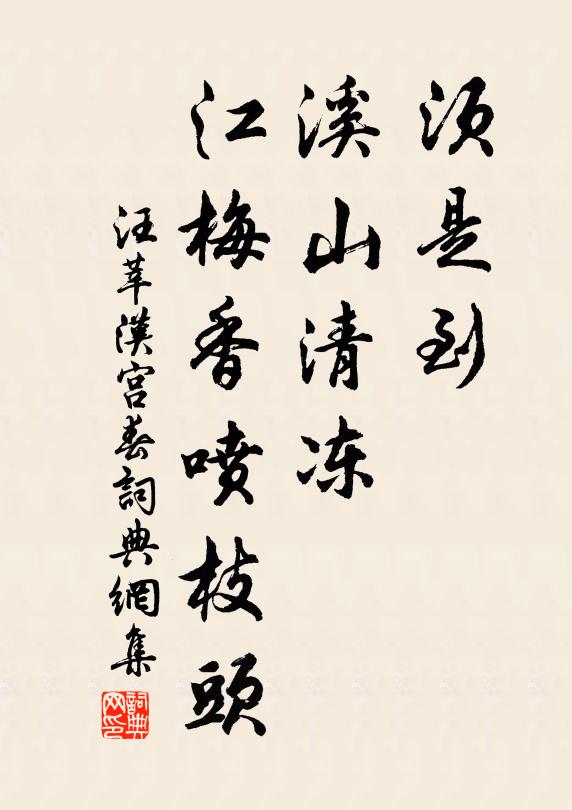 须是到
溪山清冻
江梅香喷枝頭
汪莘漢宮春詞典網集
詞典网印